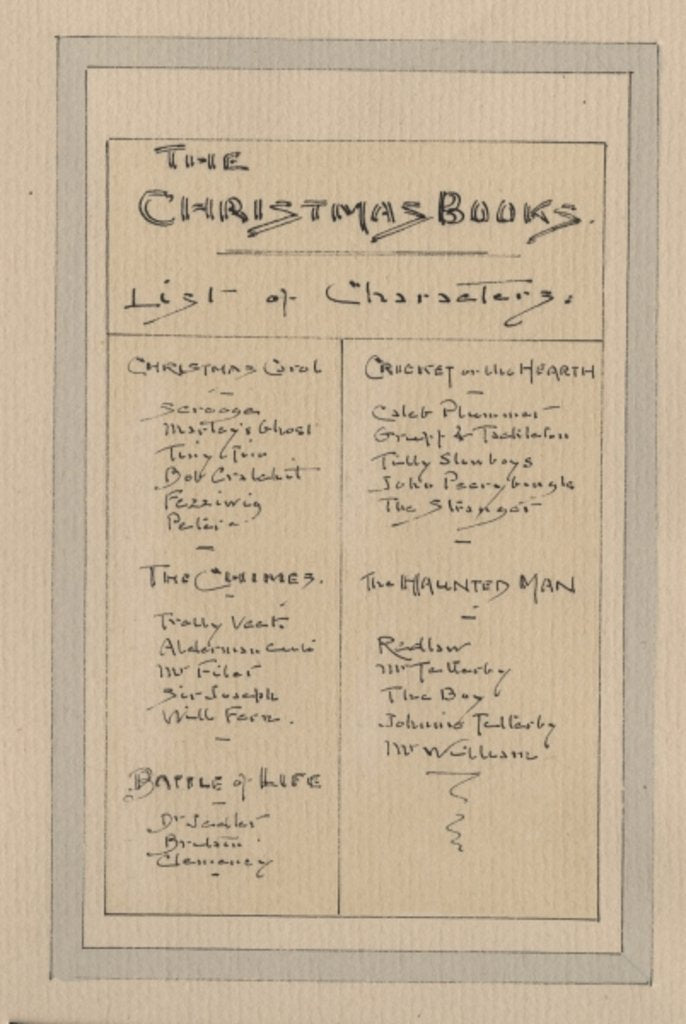 THE
CHRISTMAS BOOKS.
List of Characters.
CHRISTMAS Carol
Scrooge
Marley's Ghost
Tiny Tim
Bob Cratchit
Fezziwig
Peter
THE CHIMES.
Trotty Veck
Alderman Cute
Mr Filer
Sir Joseph
Will Fern.
BATTLE of LIFE
Dr Jeddler
Britain
Clemency
CRICKET on the HEARTH
Caleb Plummer
Gruff & Tackleton
Tilly Slowboys
John Peerybingle
The Stranger
The HAUNTED MAN
Redlaw
Mr Tetterby
The Boy
Johnnie Tetterby
Mr William